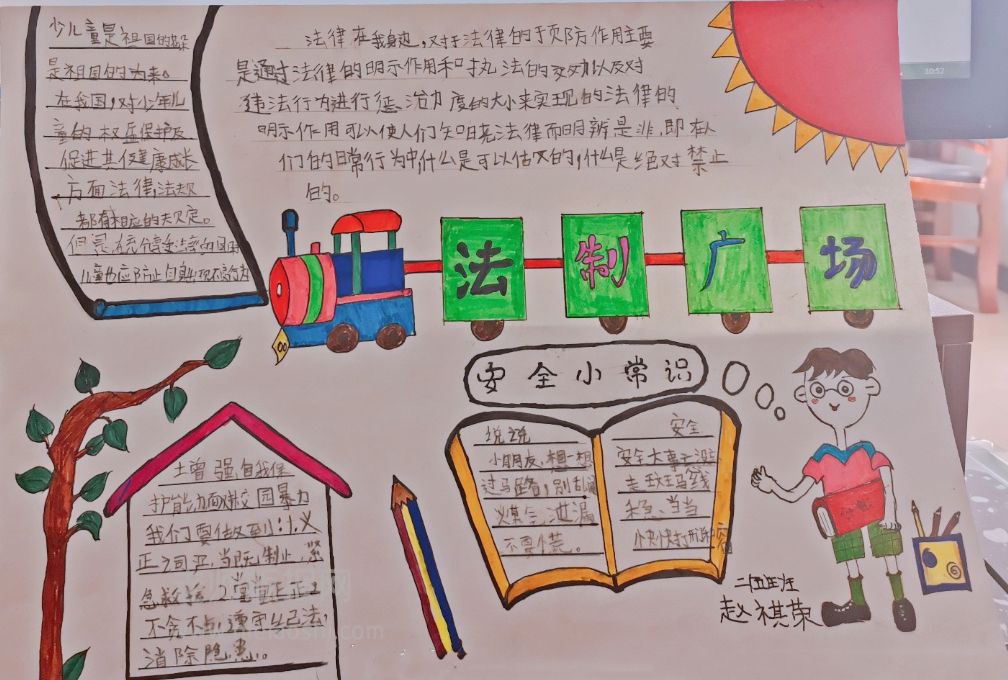 少儿童是祖国的花朵
是祖国的未来。
在我国,对少年儿
童的权益保护及
促进其健康成长
方面法律,法规
都有相应的规定。
但是
儿童也应防止自身
法律在我身边,对于法律的预防作用主要
是通过法律的明示作用和执法的效力以及对
违法行为进行惩治力度的大小来实现的法律的
明示作用可以使人们知晓法律而明辨是非,即在人
们的日常行为中什么是可以做的,什么是绝对禁止
的。
法制广场
安全小常识
说说
小朋友,想一想
过马路,别乱闯
煤气泄漏
不要慌。
安全
安全大事
走
快快打
增强自我保
护能力面对校园暴力
我们要做到:1.义
正词严,当即制止,紧
急救援 2.堂堂正正
不贪不占,遵守
消除隐患。
赵祺荣
10:52